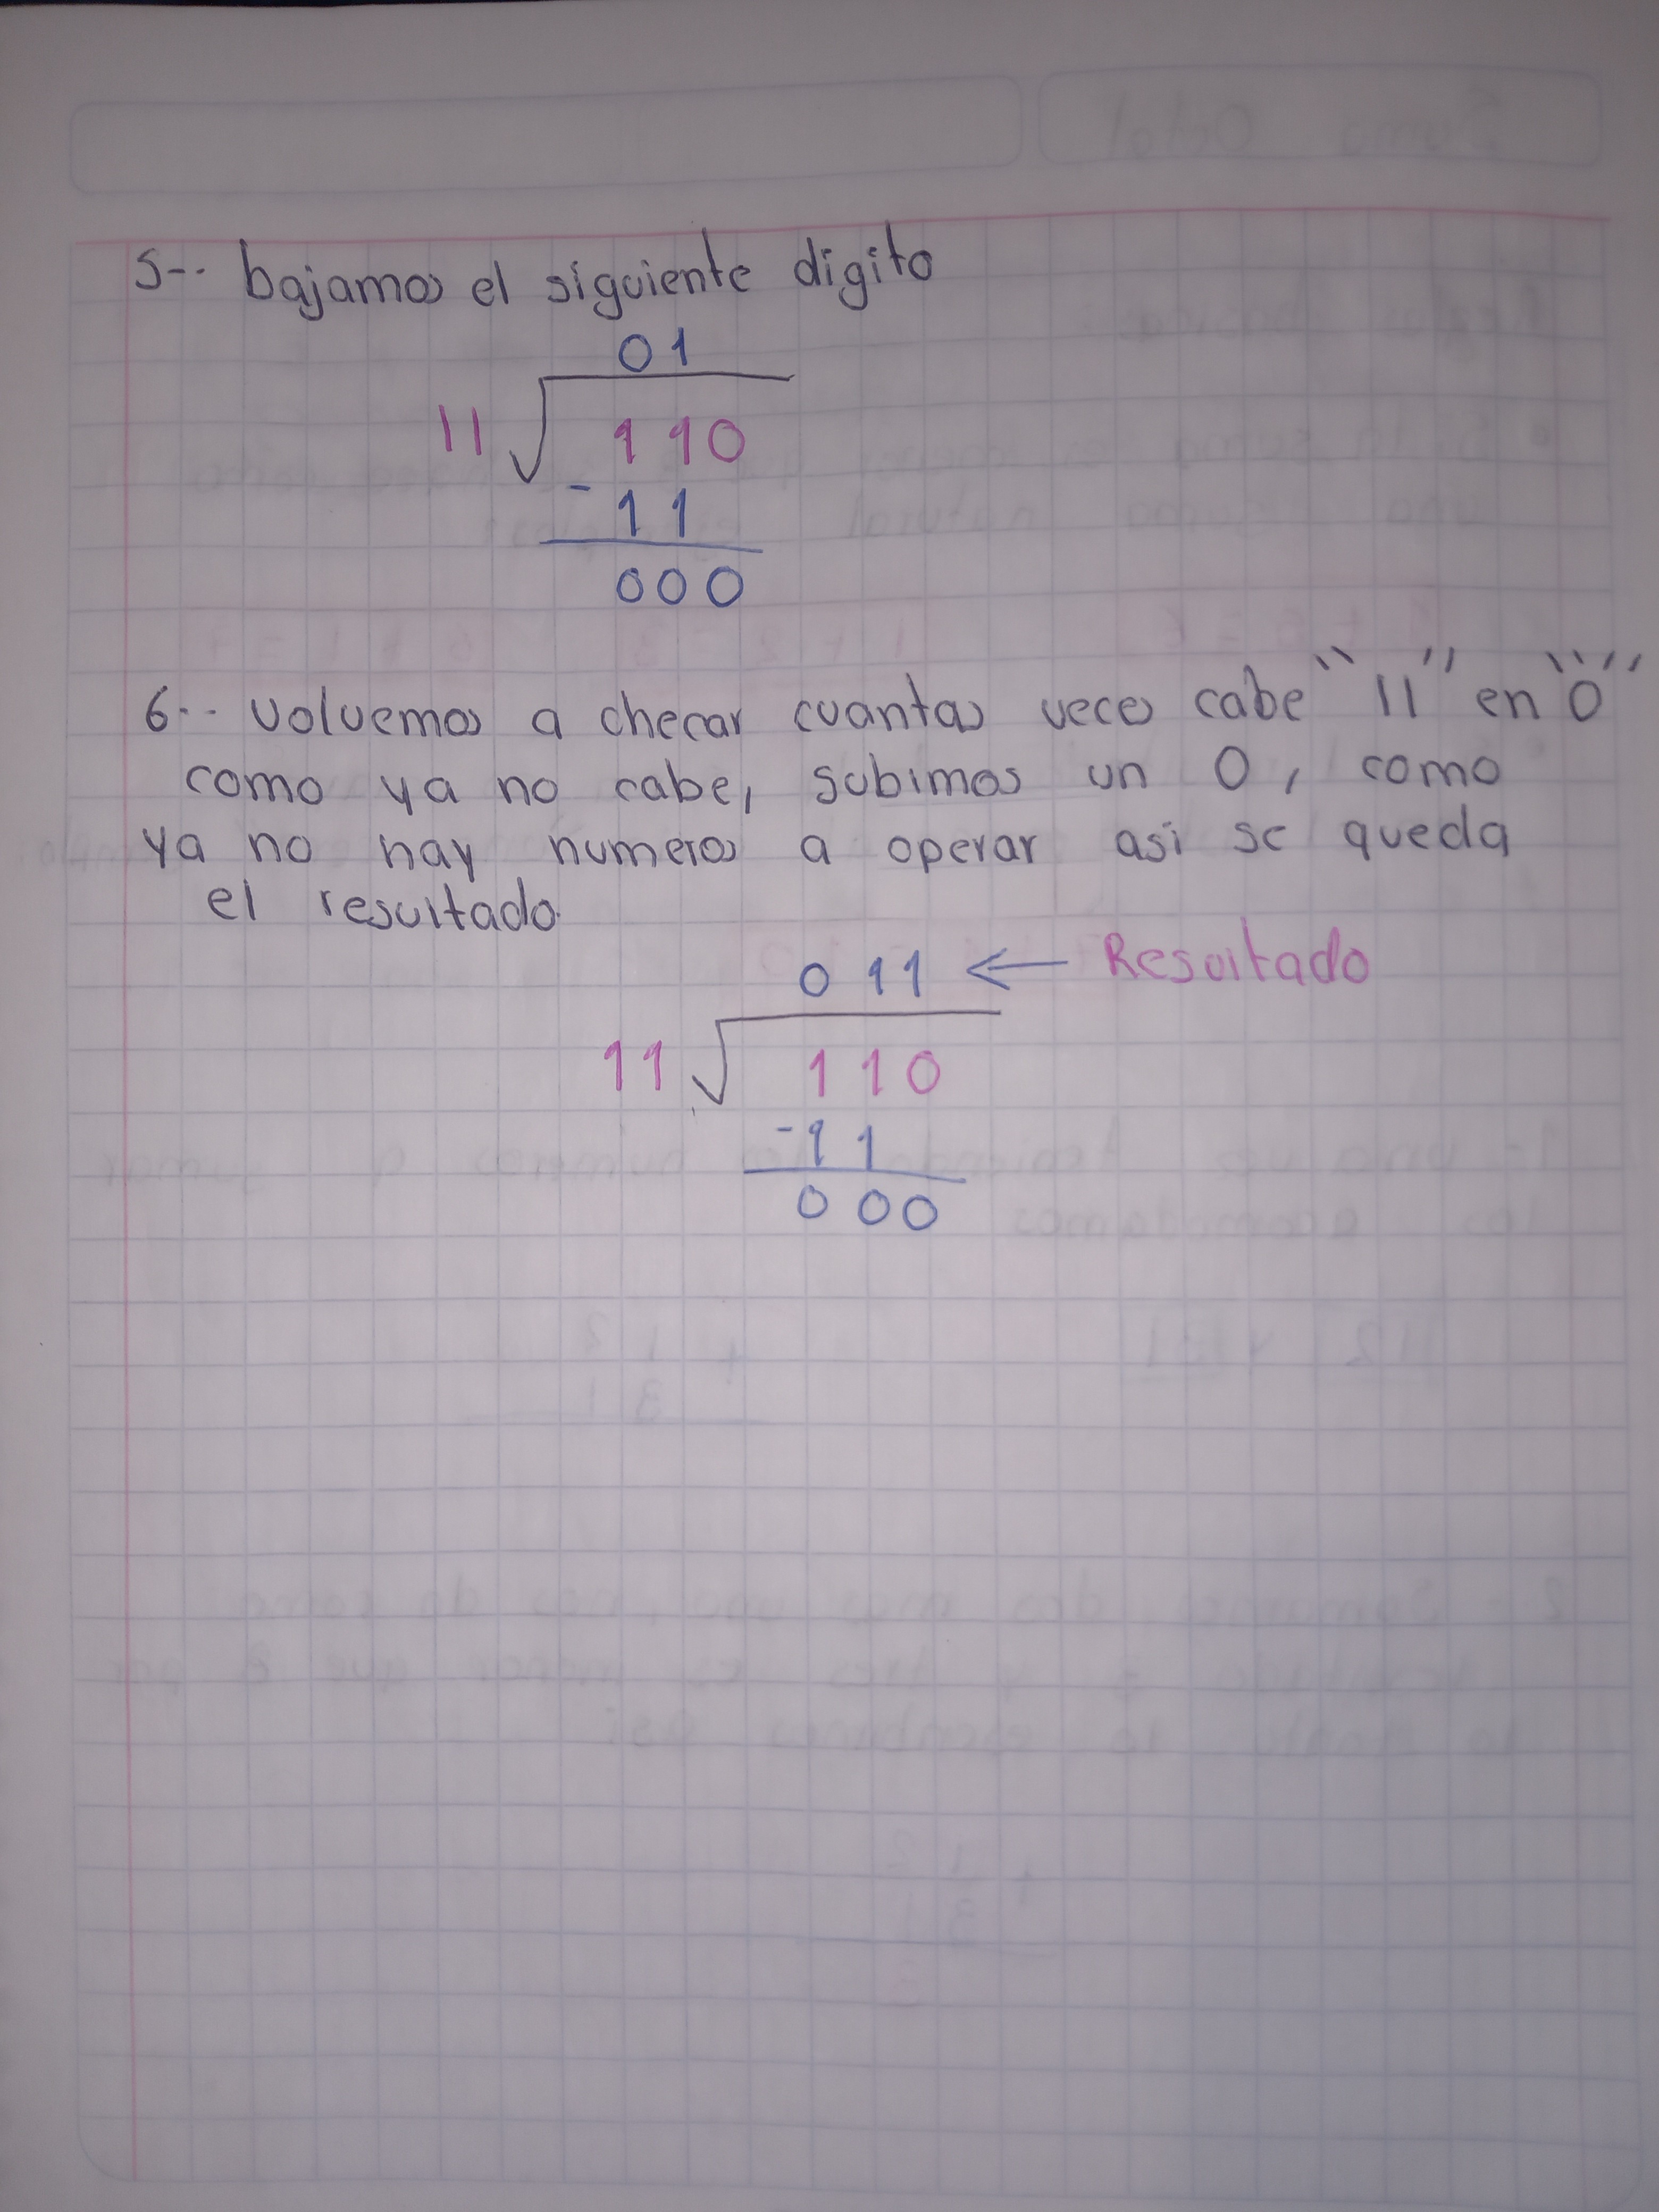 5-- bajamos el siguiente digito
01
11 110
- 11
000
6-- volvemos a checar cuantas veces cabe "11" en "0"
como ya no cabe, subimos un 0, como
ya no hay numeros a operar asi se queda
el resultado.
011 ← Resultado
11 110
-11
000